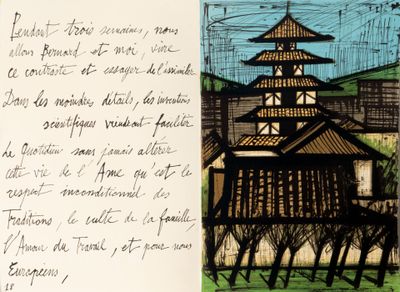 Pendant trois semaines, nous
allons Bernard et moi, vivre
ce contraste et essayer de l'assimiler
Dans les moindres détails, les inventions
scientifiques viendront faciliter
le Quotidien sans jamais altérer
cette vie de l'Ame qui est le
respect inconditionnel des
Traditions, le culte de la famille,
l'Amour du Travail, et pour nous
Européens,
28